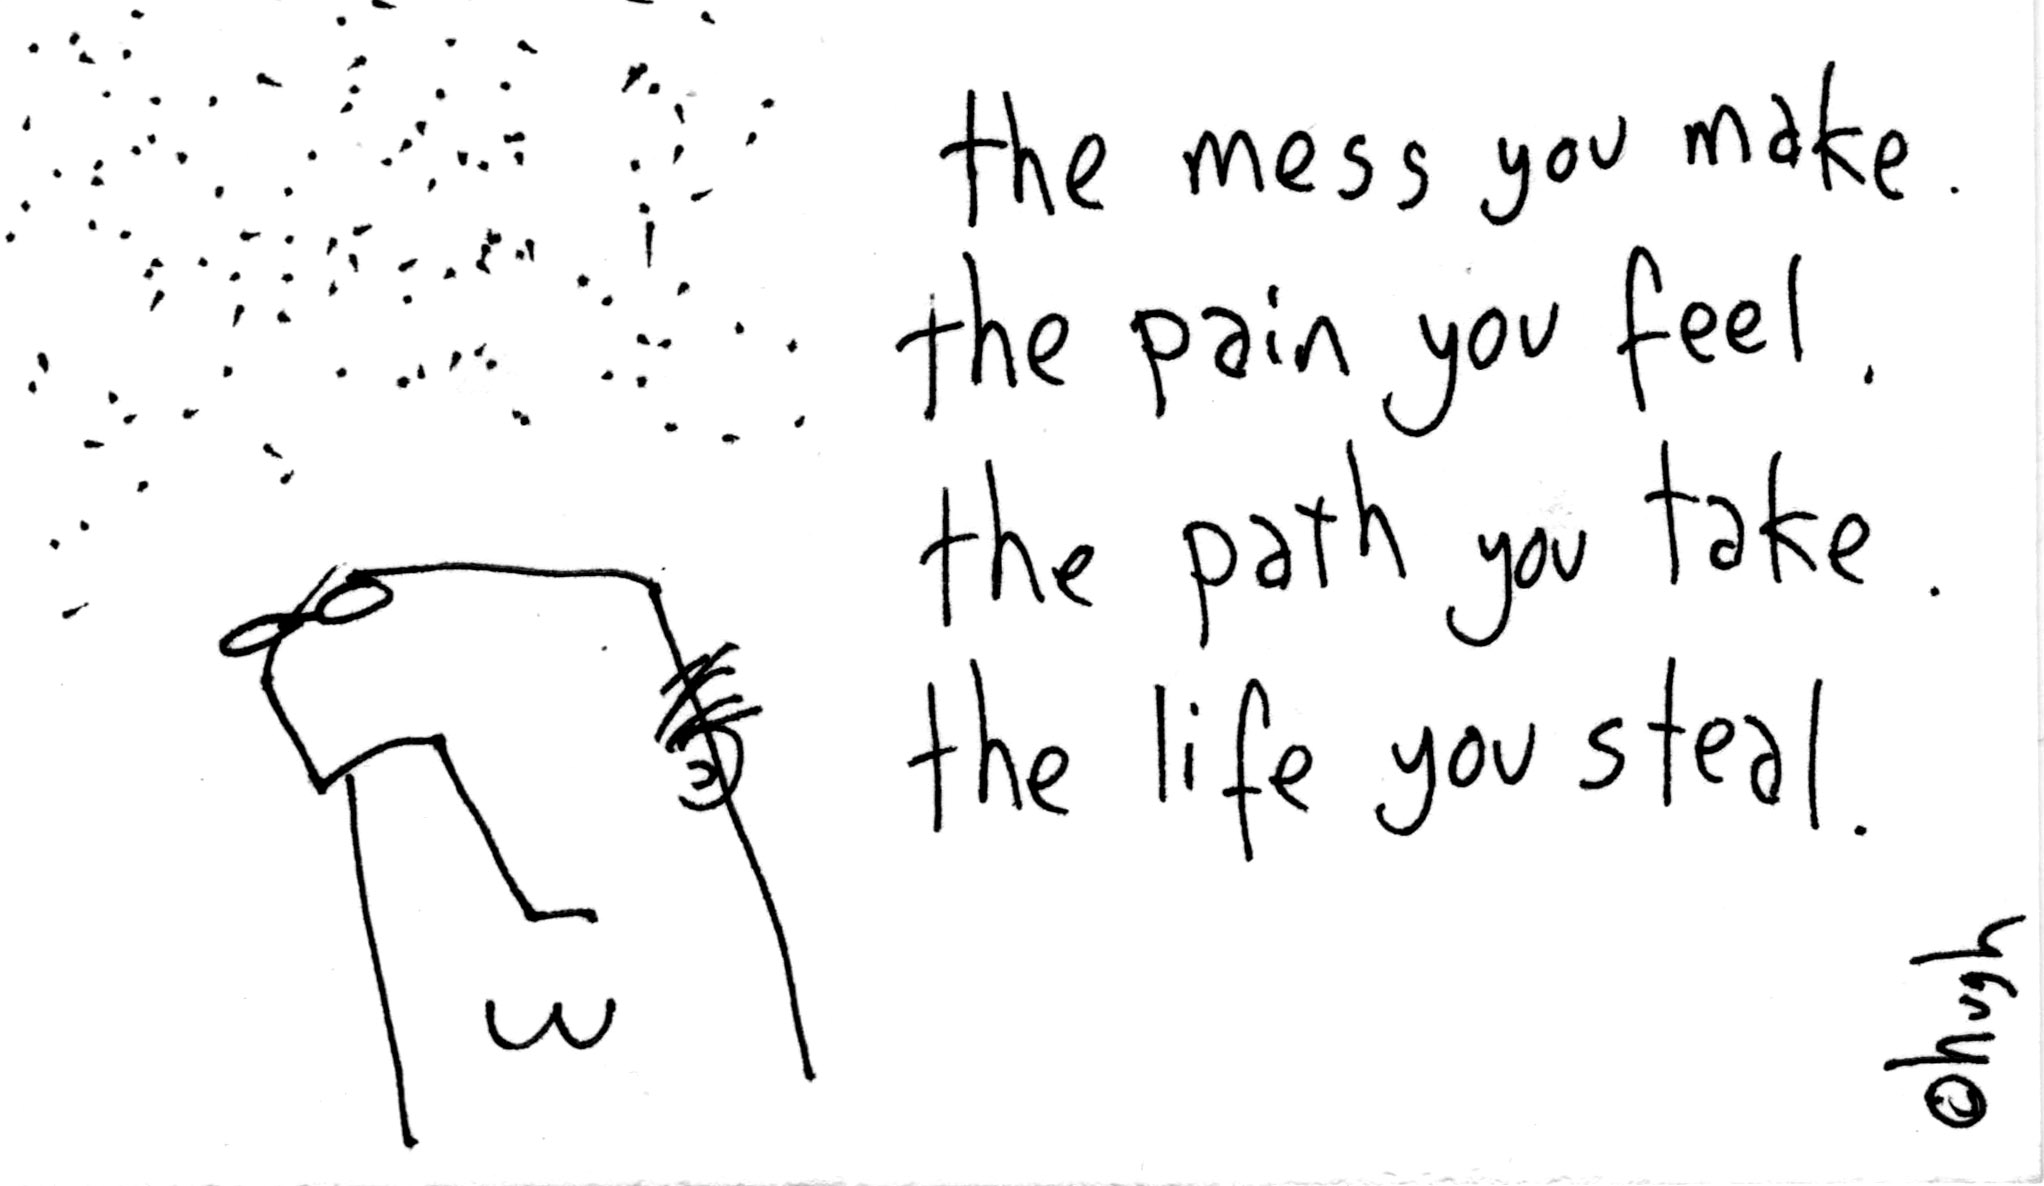 the mess you make.
the pain you feel.
the path you take.
the life you steal.
©hugh